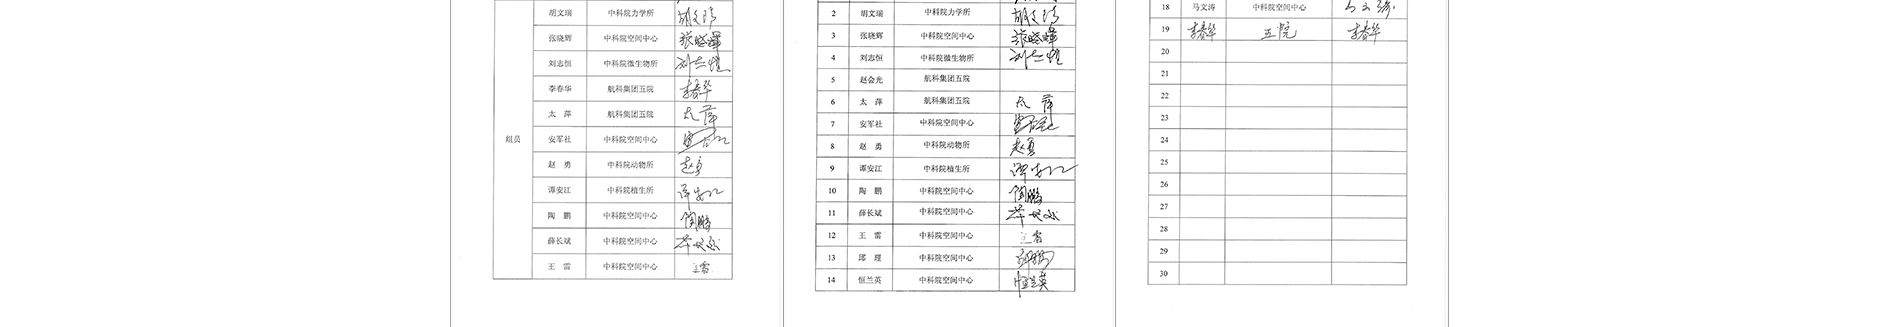 组员
胡文瑞 中科院力学所 胡文瑞
张晓辉 中科院空间中心 张晓辉
刘志恒 中科院微生物所 刘志恒
李春华 航科集团五院 李春华
太 萍 航科集团五院 太萍
安军社 中科院空间中心
赵 勇 中科院动物所 赵勇
谭安江 中科院植生所 谭安江
陶 鹏 中科院空间中心 陶鹏
薛长斌 中科院空间中心 薛长斌
王 雷 中科院空间中心 王雷
2 胡文瑞 中科院力学所 胡文瑞
3 张晓辉 中科院空间中心 张晓辉
4 刘志恒 中科院微生物所 刘志恒
5 赵会光 航科集团五院
6 太 萍 航科集团五院 太萍
7 安军社 中科院空间中心
8 赵 勇 中科院动物所 赵勇
9 谭安江 中科院植生所 谭安江
10 陶 鹏 中科院空间中心 陶鹏
11 薛长斌 中科院空间中心 薛长斌
12 王 雷 中科院空间中心 王雷
13 邱 理 中科院空间中心
14 恒兰英 中科院空间中心 恒兰英
18 马文涛 中科院空间中心
19 李春华 五院 李春华
20
21
22
23
24
25
26
27
28
29
30